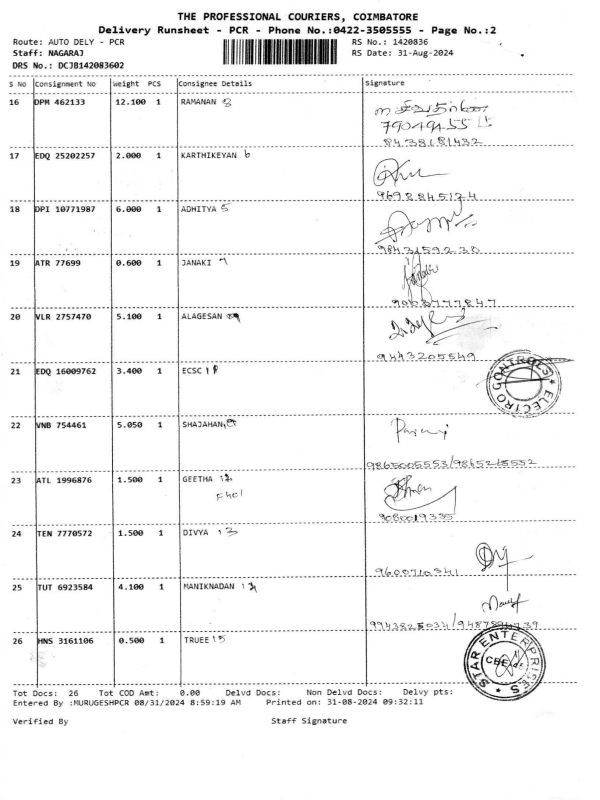 THE PROFESSIONAL COURIERS, COIMBATORE
Delivery Runsheet - PCR - Phone No.:0422-3505555 - Page No.:2
Route: AUTO DELY - PCR RS No.: 1420836
Staff: NAGARAJ RS Date: 31-Aug-2024
DRS No.: DCJB142083602
S No Consignment No Weight PCS Consignee Details Signature
16 DPM 462133 12.100 1 RAMANAN
8438181432
17 EDQ 25202257 2.000 1 KARTHIKEYAN 6
9698845124
18 DPI 10771987 6.000 1 ADHITYA 5
9843159230
19 ATR 77699 0.600 1 JANAKI 7
9003777847
20 VLR 2757470 5.100 1 ALAGESAN
9443205549
21 EDQ 16009762 3.400 1 ECSC
ELECTRO CONTROLS
22 VNB 754461 5.050 1 SHAJAHAN
9865005553/9865215552
23 ATL 1996876 1.500 1 GEETHA 12
9080019335
24 TEN 7770572 1.500 1 DIVYA 13
9600710341
25 TUT 6923584 4.100 1 MANIKNADAN 14
26 HNS 3161106 0.500 1 TRUEE 15
STAR ENTERPRISES
CBE
Tot Docs: 26 Tot COD Amt: 0.00 Delvd Docs: Non Delvd Docs: Delvy pts:
Entered By :MURUGESHPCR 08/31/2024 8:59:19 AM Printed on: 31-08-2024 09:32:11
Verified By Staff Signature